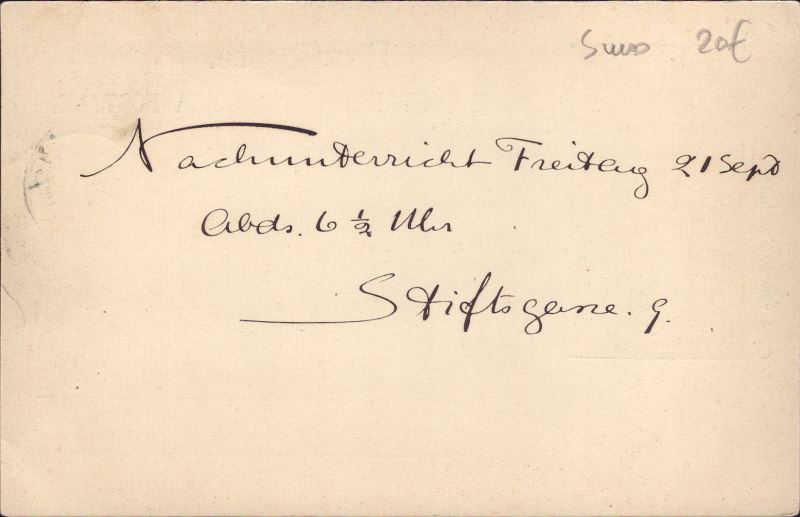 20€
Nachunterricht Freitag 21 Sept
Abds. 6 ½ Uhr
Stiftsgasse. 9.